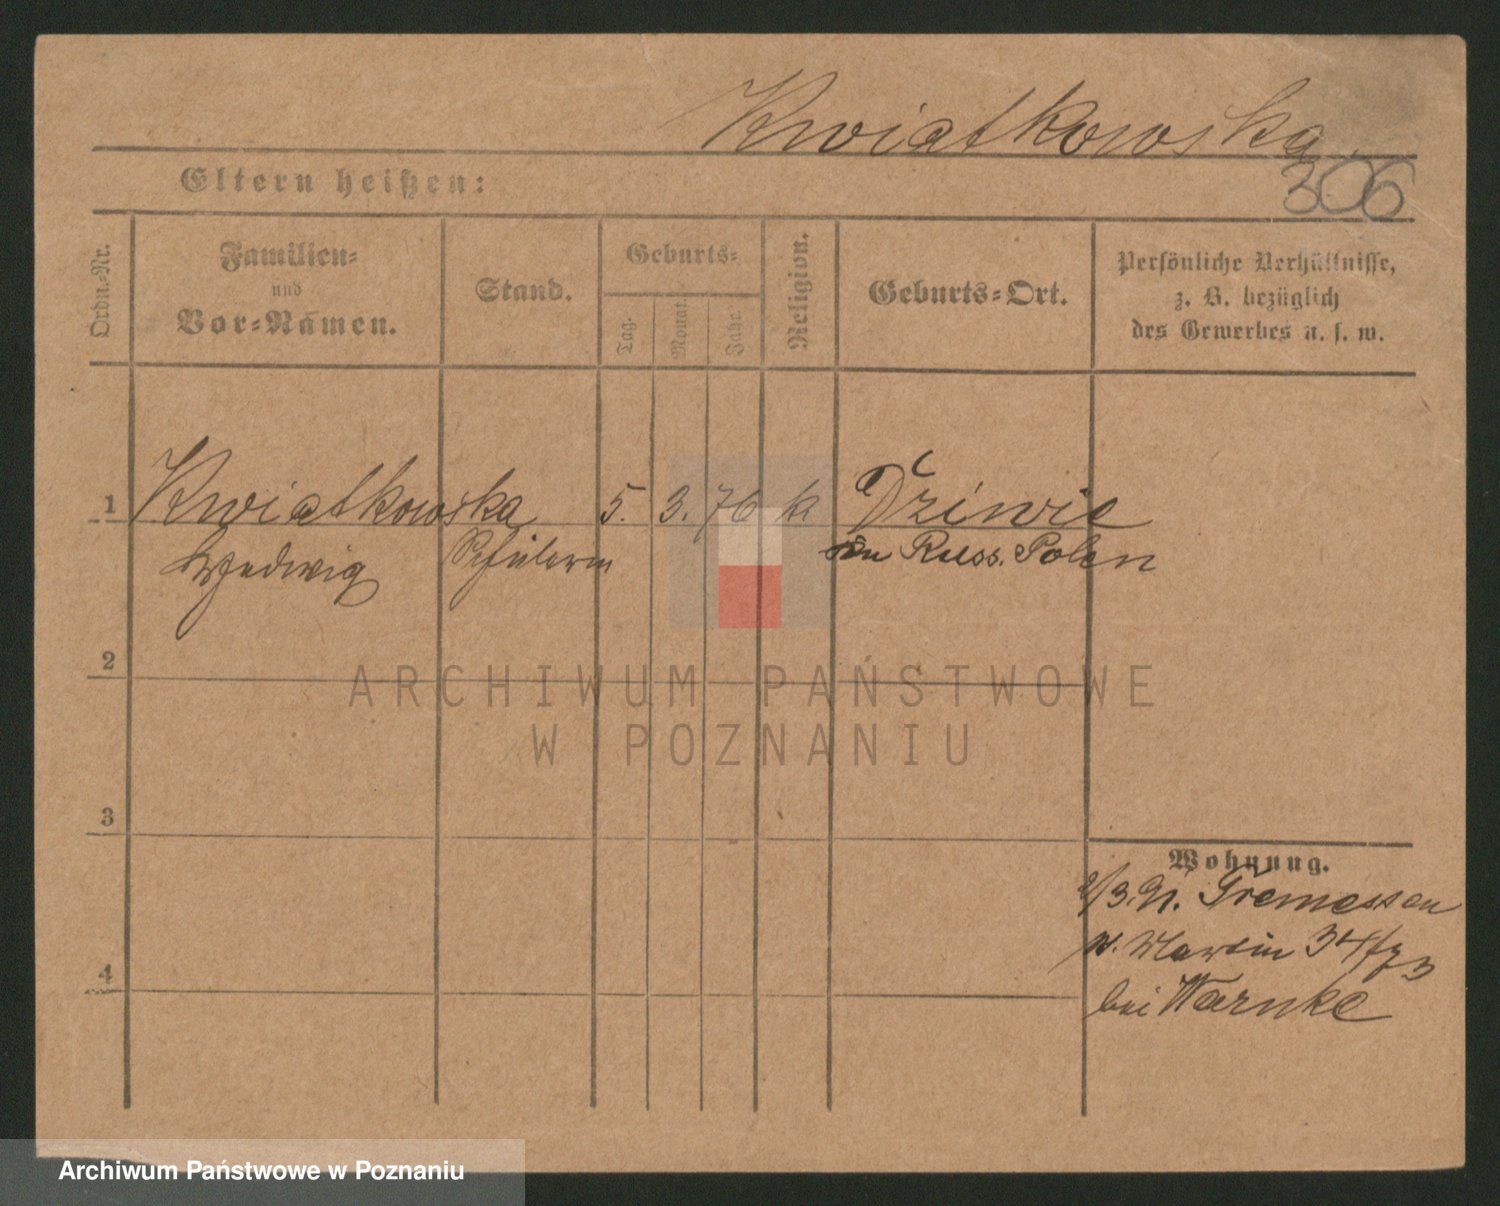 Kwiatkowska
306
Eltern heißen:
Ordn.-Nr.
Familien-
und
Vor-Namen.
Stand.
Geburts-
Tag.
Monat.
Jahr.
Religion.
Geburts-Ort.
Persönliche Verhältnisse,
z. B. bezüglich
des Gewerbes u. s. w.
1 Kwiatkowska 5. 3. 76 k Dziwie
Hedwig Schülerin in Russ. Polen
2
3
4
Wohnung.
Tremessen
Martin 34
bei Warnke
ARCHIWUM PAŃSTWOWE
W POZNANIU
Archiwum Państwowe w Poznaniu